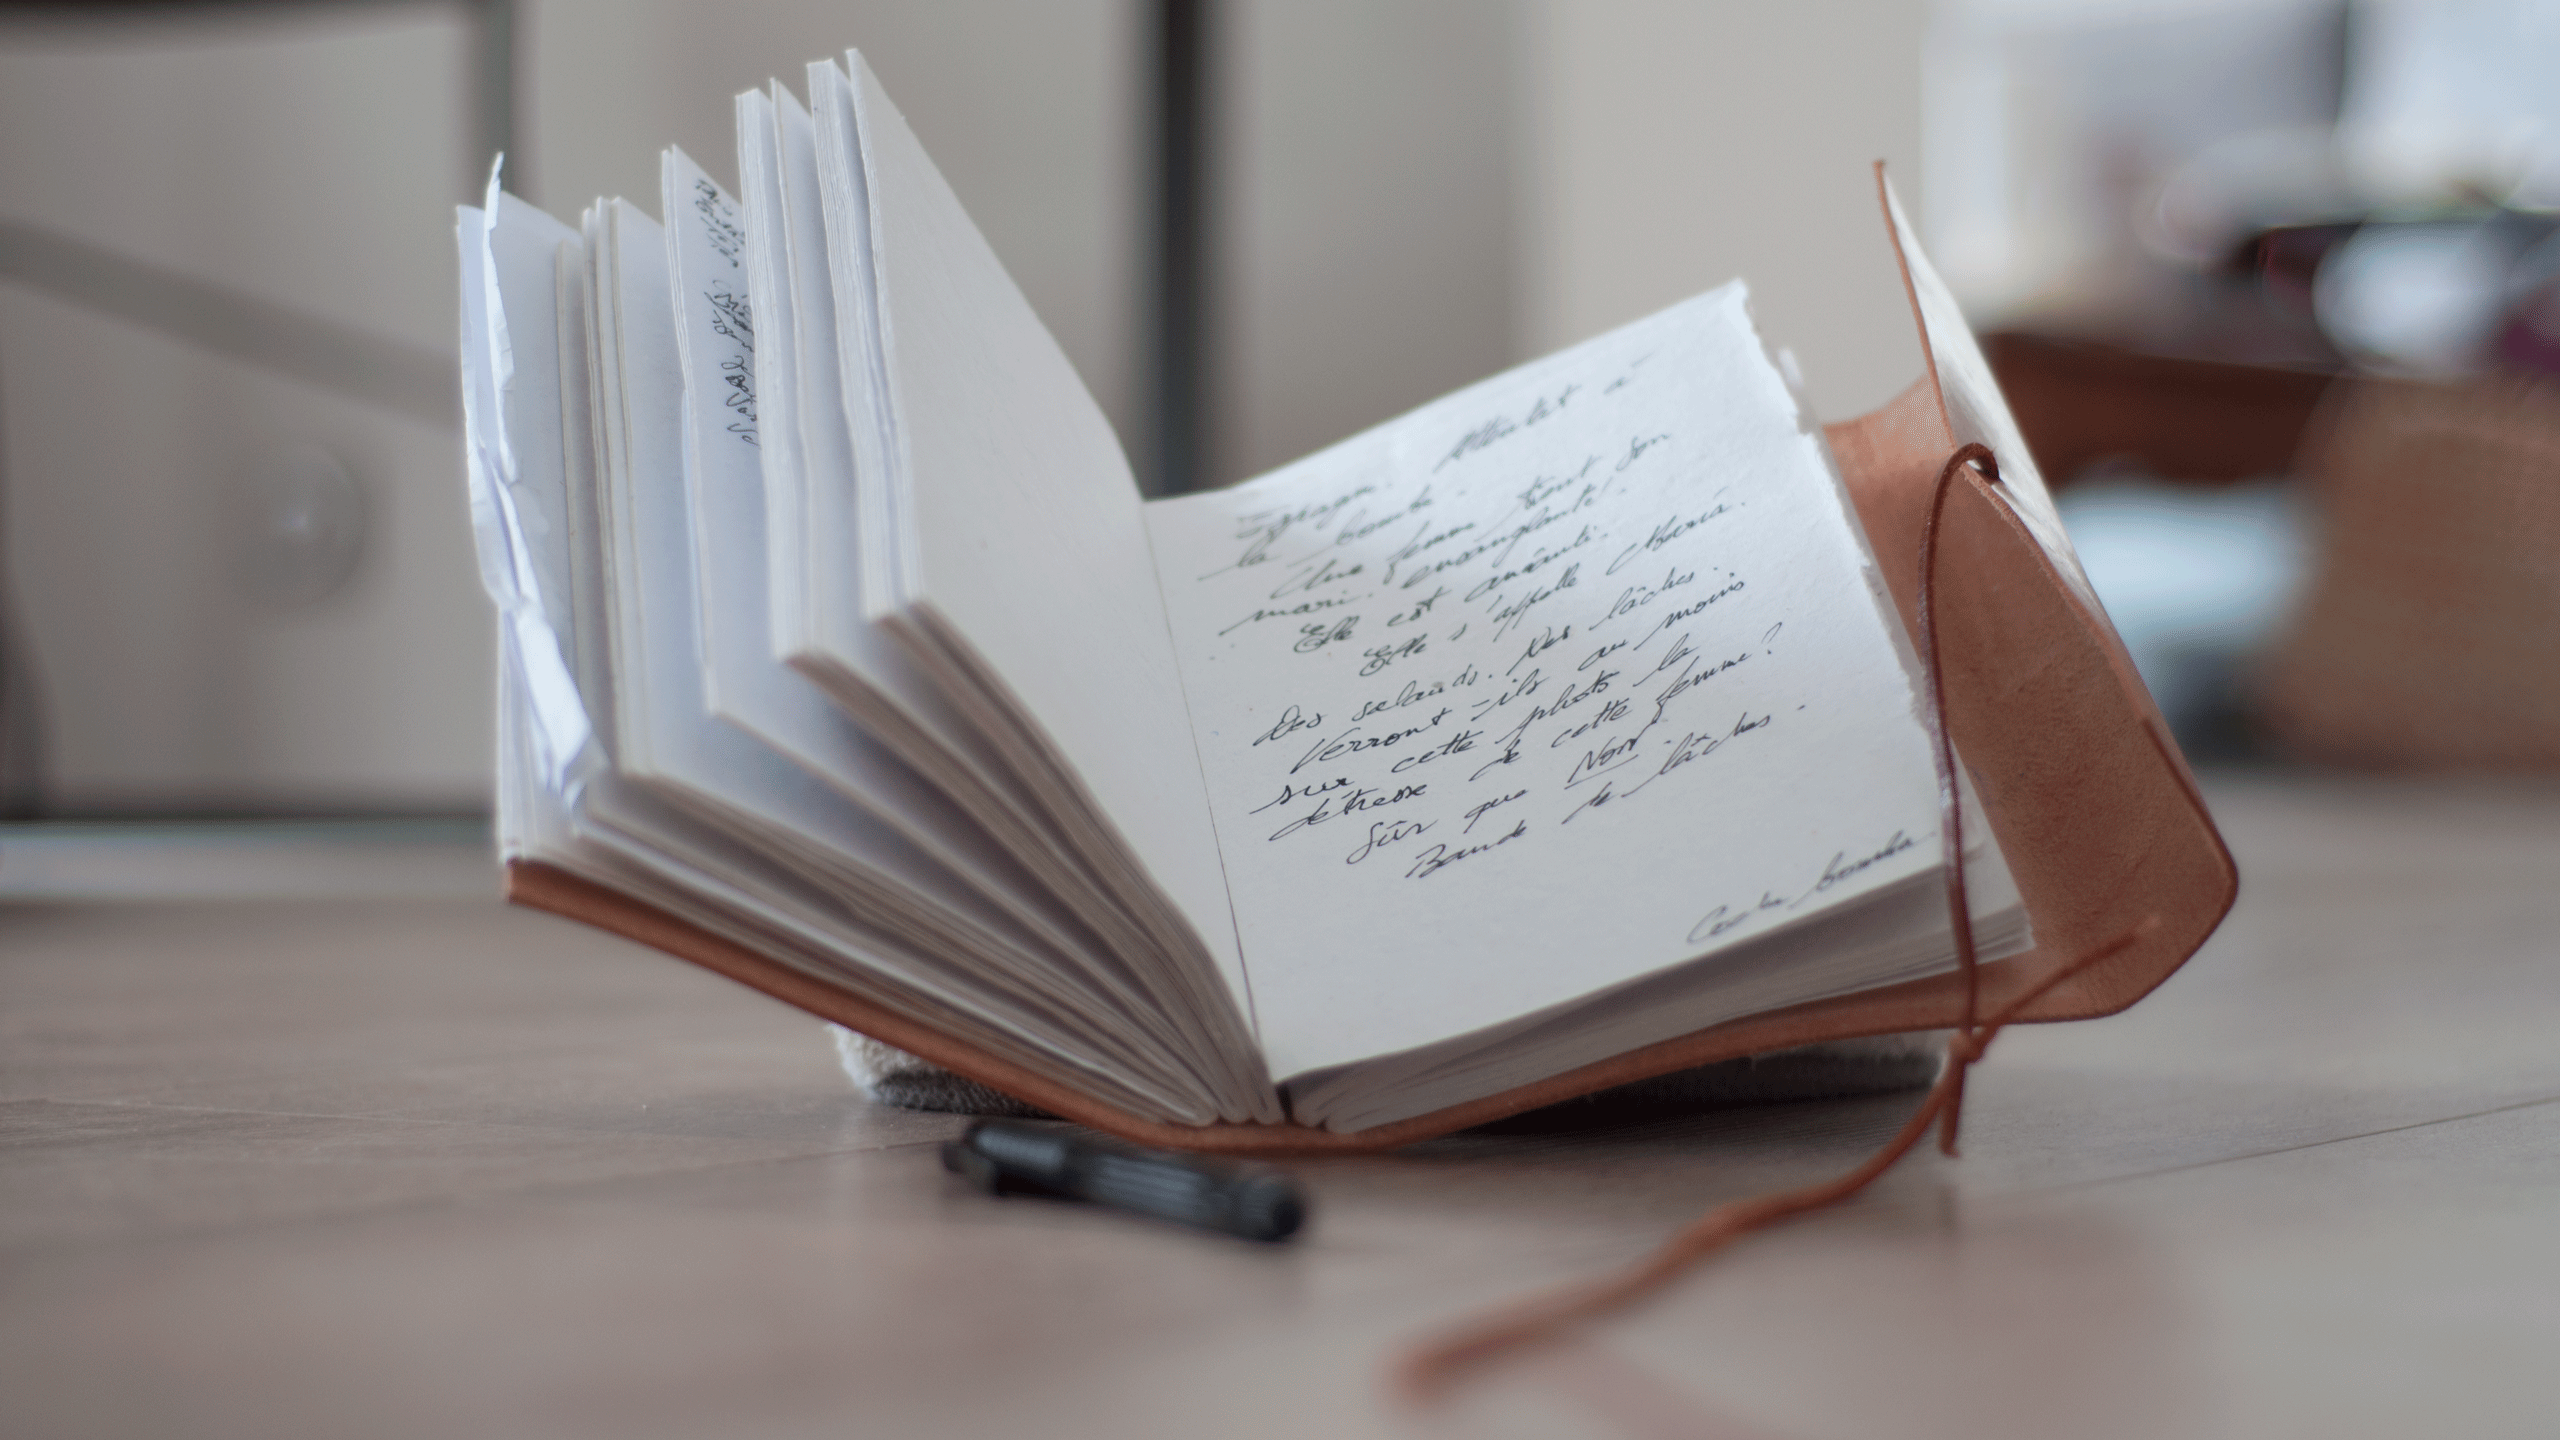 Attentat à
la bombe.
Une femme tient son
mari. ensanglanté.
Elle est anéanti.
Elle s'appelle Maria.
Des salauds. Des lâches.
Verront-ils au moins
sur cette photo la
détresse de cette femme?
Sûr que Non.
Bande de lâches.